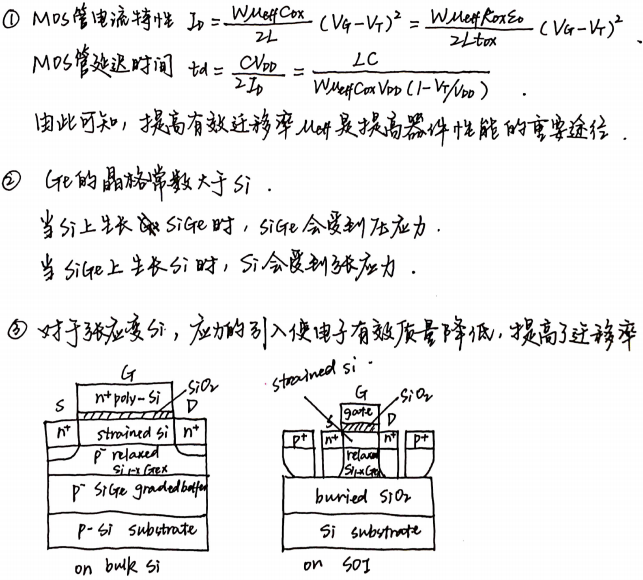 ① MOS管电流特性 I_D = Wμeff Cox / 2L (V_G - V_T)² = Wμeff kox ε0 / 2L tox (V_G - V_T)².
MOS管延迟时间 td = CV_DD / 2I_D = LC / Wμeff Cox V_DD (1 - V_T/V_DD).
由此可知, 提高有效迁移率 μeff 是提高器件性能的重要途径.
② Ge的晶格常数大于Si.
当Si上生长 SiGe时, SiGe会受到压应力.
当SiGe上生长Si时, Si会受到张应力.
③ 对于张应变Si, 应力的引入使电子有效质量降低, 提高了迁移率
G
n+ poly-Si
SiO2
S
D
n+
strained Si
n+
p- relaxed
Si1-xGex
p- SiGe graded buffer
p-Si substrate
on bulk Si
strained si
G
SiO2
gate
S
D
p+
n+
n+
p+
relaxed
Si1-xGex
buried SiO2
Si substrate
on SOI